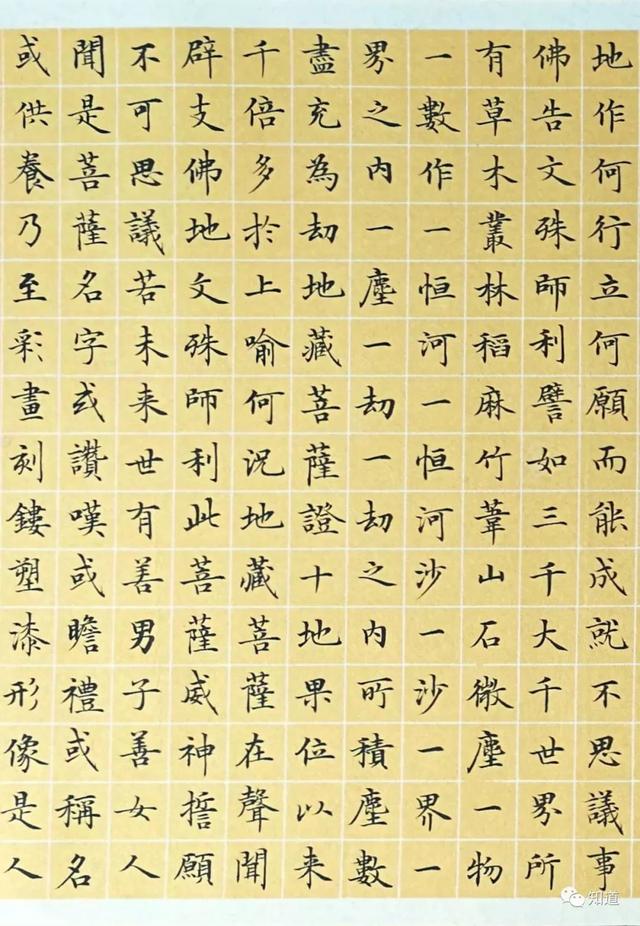 地作何行立何願而能成就不思議事
佛告文殊師利譬如三千大千世界所
有草木叢林稻麻竹葦山石微塵一物
一數作一恒河一恒河沙一沙一界一
界之內一塵一劫一劫之內所積塵數
盡充為劫地藏菩薩證十地果位以來
千倍多於上喻何況地藏菩薩在聲聞
辟支佛地文殊師利此菩薩威神誓願
不可思議若未來世有善男子善女人
聞是菩薩名字或讚嘆或瞻禮或稱名
或供養乃至彩畫刻鏤塑漆形像是人
知道